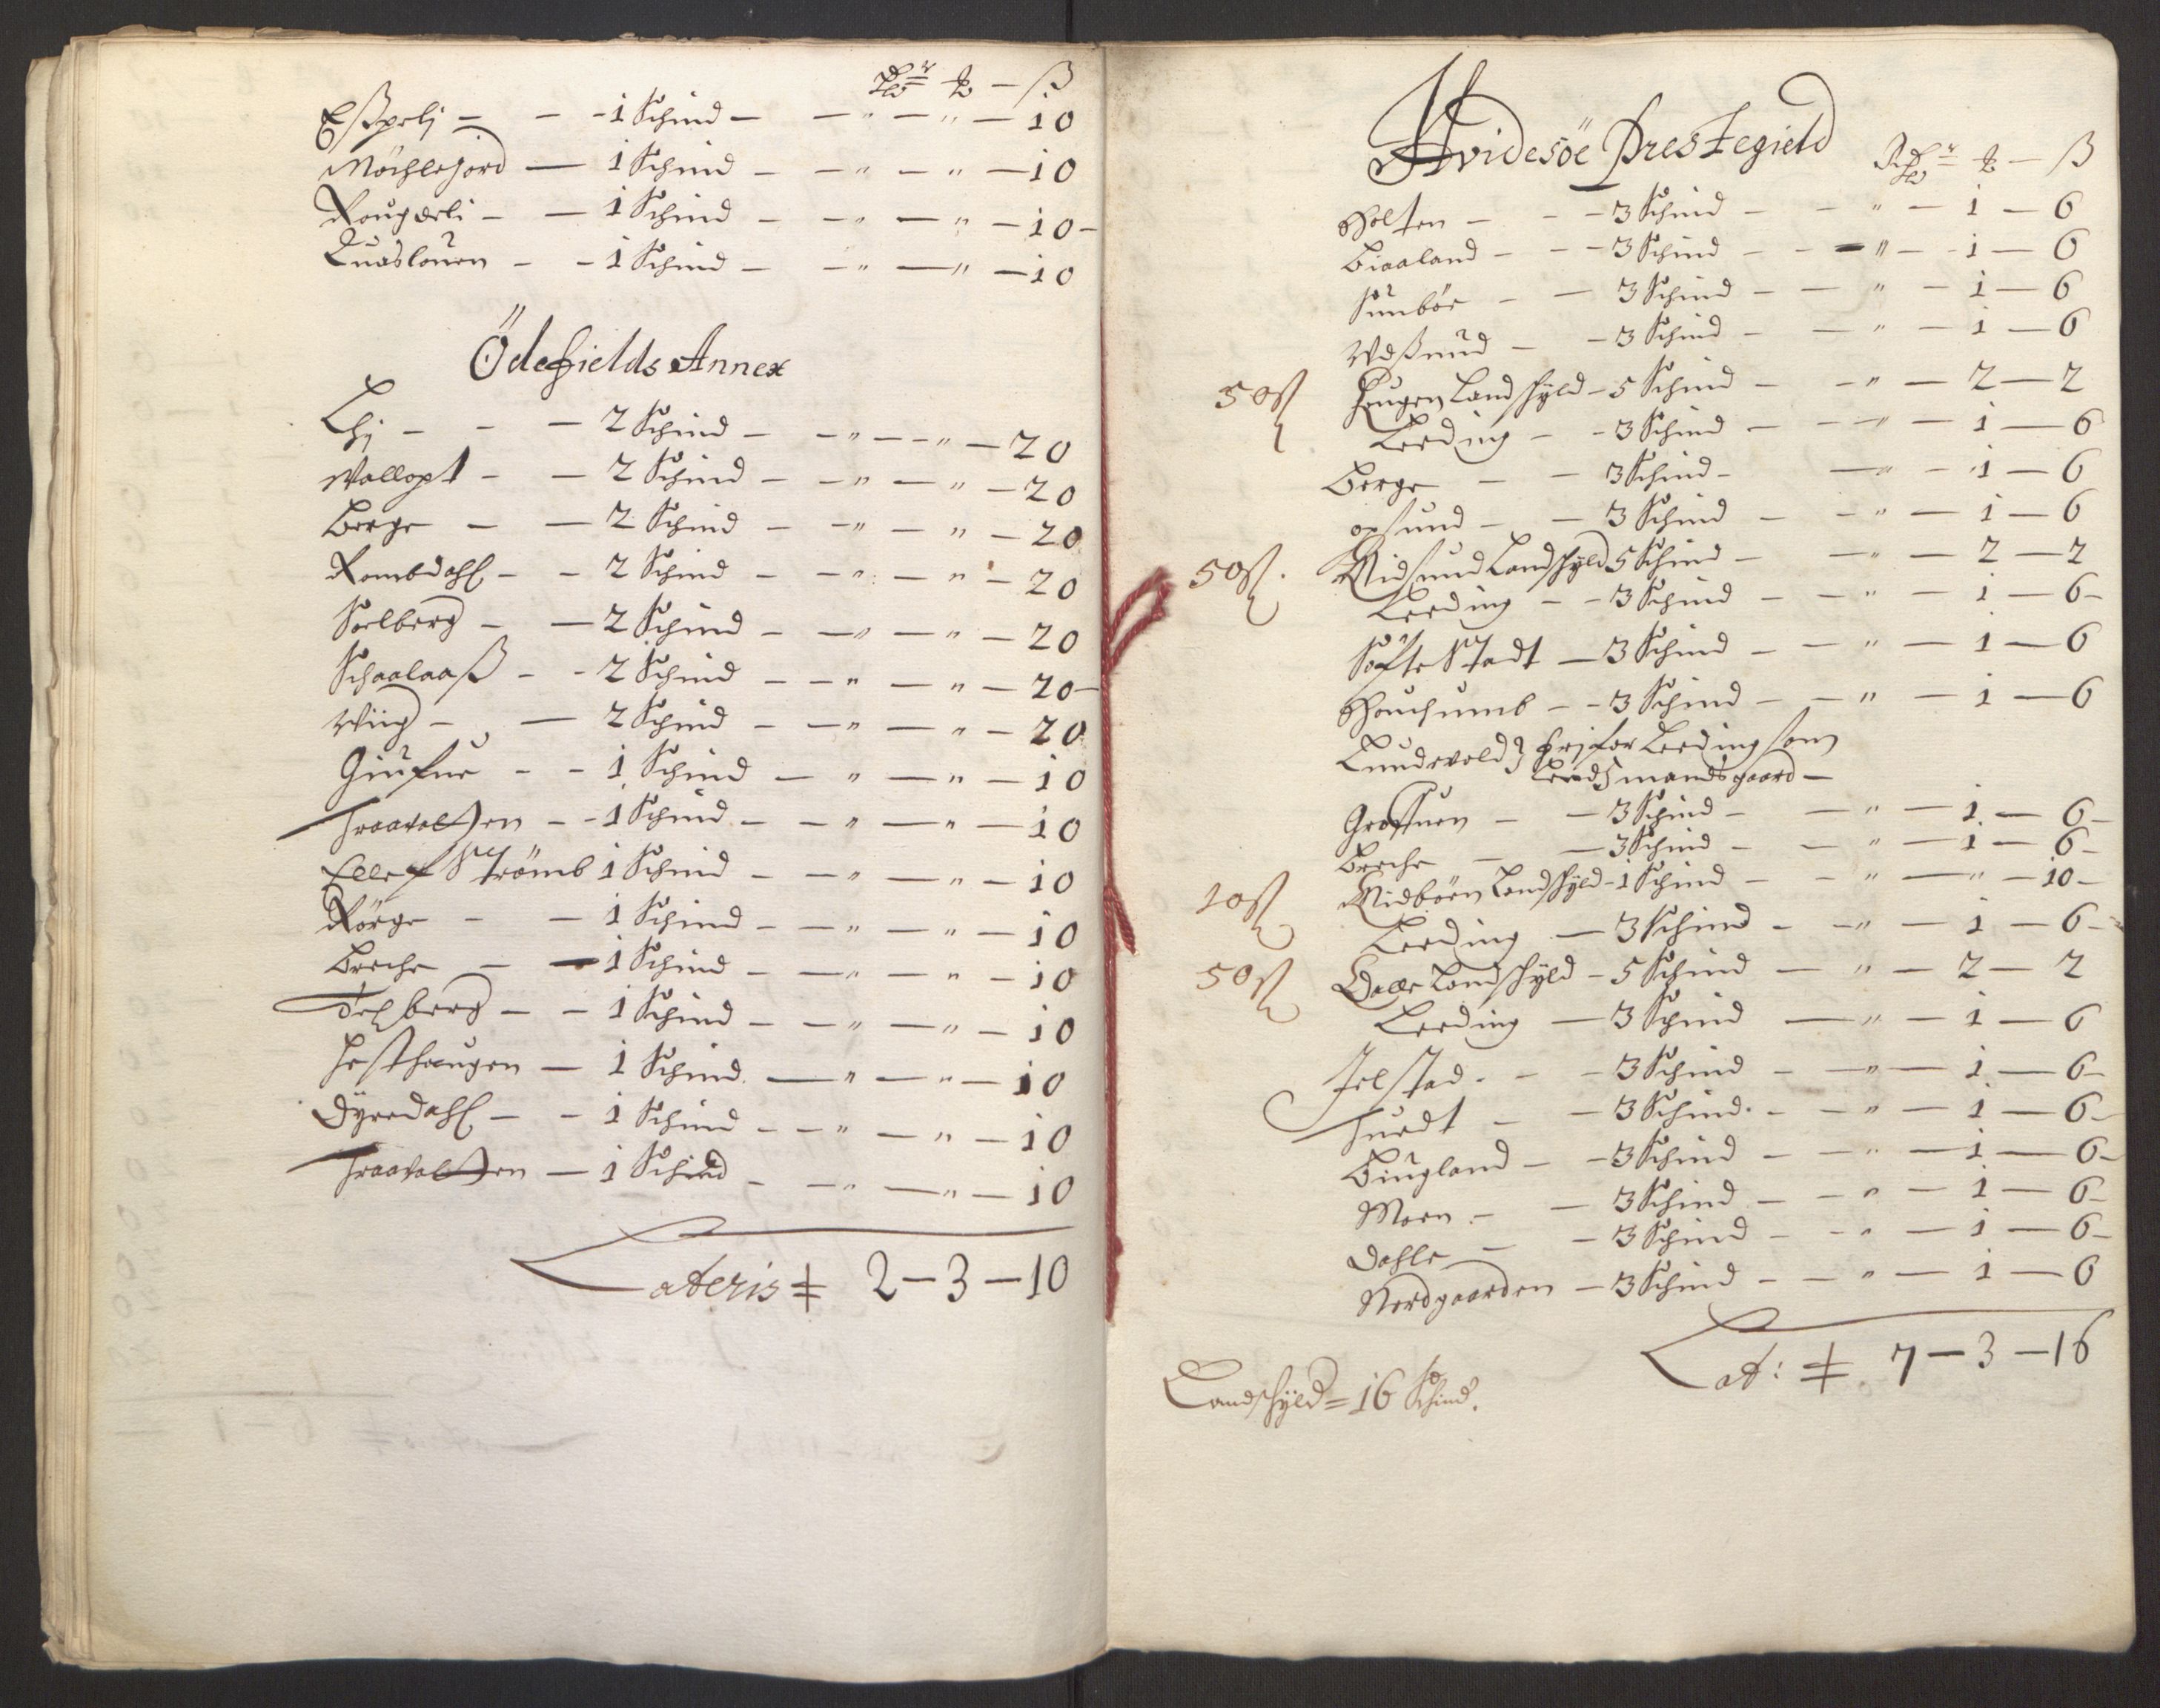 Rdr # — ß
Eßpelj — — - 1 Schind — — " — " — 10
Möchlejord — 1 Schind — — " — " — 10
Rougdeli — — 1 Schind — — " — " — 10 —
Quaslouen — — 1 Schind — — " — " — 10
Ödefields Annex
Lhj — — — 2 Schind — — " — " — 20
Wallopt — — 2 Schind — — " — " — 20
Berge — — 2 Schind — — " — " — 20
Rombdahl — — 2 Schind — — " — " — 20
Soelberg — — 2 Schind — — " — " — 20
Schaalaaß — — 2 Schind — — " — " — 20 —
Wiig — — 2 Schind — — " — " — 20
Giufue — — 1 Schind — " — " — 10
Traavatten — — 1 Schind — — " — " — 10
Ellef Strömb 1 Schind — — " — " — 10
Rörge — — 1 Schind — — " — " — 10
Berche — — 1 Schind — — " — " — 10
Belberg — — 1 Schind — — " — " — 10
Hesthaugen — 1 Schind — " — " — 10
Dÿredahl — — 1 Schind — — " — " — 10
Traavatten — 1 Schind — — " — " — 10
Lateris ‡ 2 — 3 — 10
Hvidesöe Prestegield
Rdr # — ß
Holten — — — 3 Schind — — " — 1 — 6
Biaaland — — — 3 Schind — — " — 1 — 6
Sunböe — — 3 Schind — — " — 1 — 6
Weßnud — — 3 Schind — — " — 1 — 6
50ß Haugen Landschÿld — 5 Schind — — " — 2 — 2
Leeding — — 3 Schind — — " — 1 — 6
Berge — — 3 Schind — — " — 1 — 6
opsund — — 3 Schind — — " — 1 — 6
50ß. Midsund Landschÿld 5 Schind — — " — 2 — 2
Leeding — — 3 Schind — — " — 1 — 6 —
Söfte Stadt — 3 Schind — — " — 1 — 6
Houchumb — — 3 Schind — — " — 1 — 6
Lundevold } frj for Leeding som
Lendsmandsgaard —
Groffuen — — 3 Schind — — " — 1 — 6 —
Berche — — 3 Schind — — " — 1 — 6 —
10ß Midböen Landschÿld — 1 Schind — — " — " — 10 —
Leeding — 3 Schind — — " — 1 — 6 —
50ß Dalle Landschÿld — 5 Schind — " — 2 — 2
Leeding — 3 Schind — " — 1 — 6
Jelstad — — 3 Schind — — " — 1 — 6 —
Tuedt — — 3 Schind — — " — 1 — 6 —
Biugland — — 3 Schind — — " — 1 — 6 —
Moen — — 3 Schind — — " — 1 — 6 —
Dahle — — 3 Schind — — " — 1 — 6 —
Nordgaarden — 3 Schind — — " — 1 — 6
Lat: ‡ 7 — 3 — 16
Landschÿld = 16 Schind.